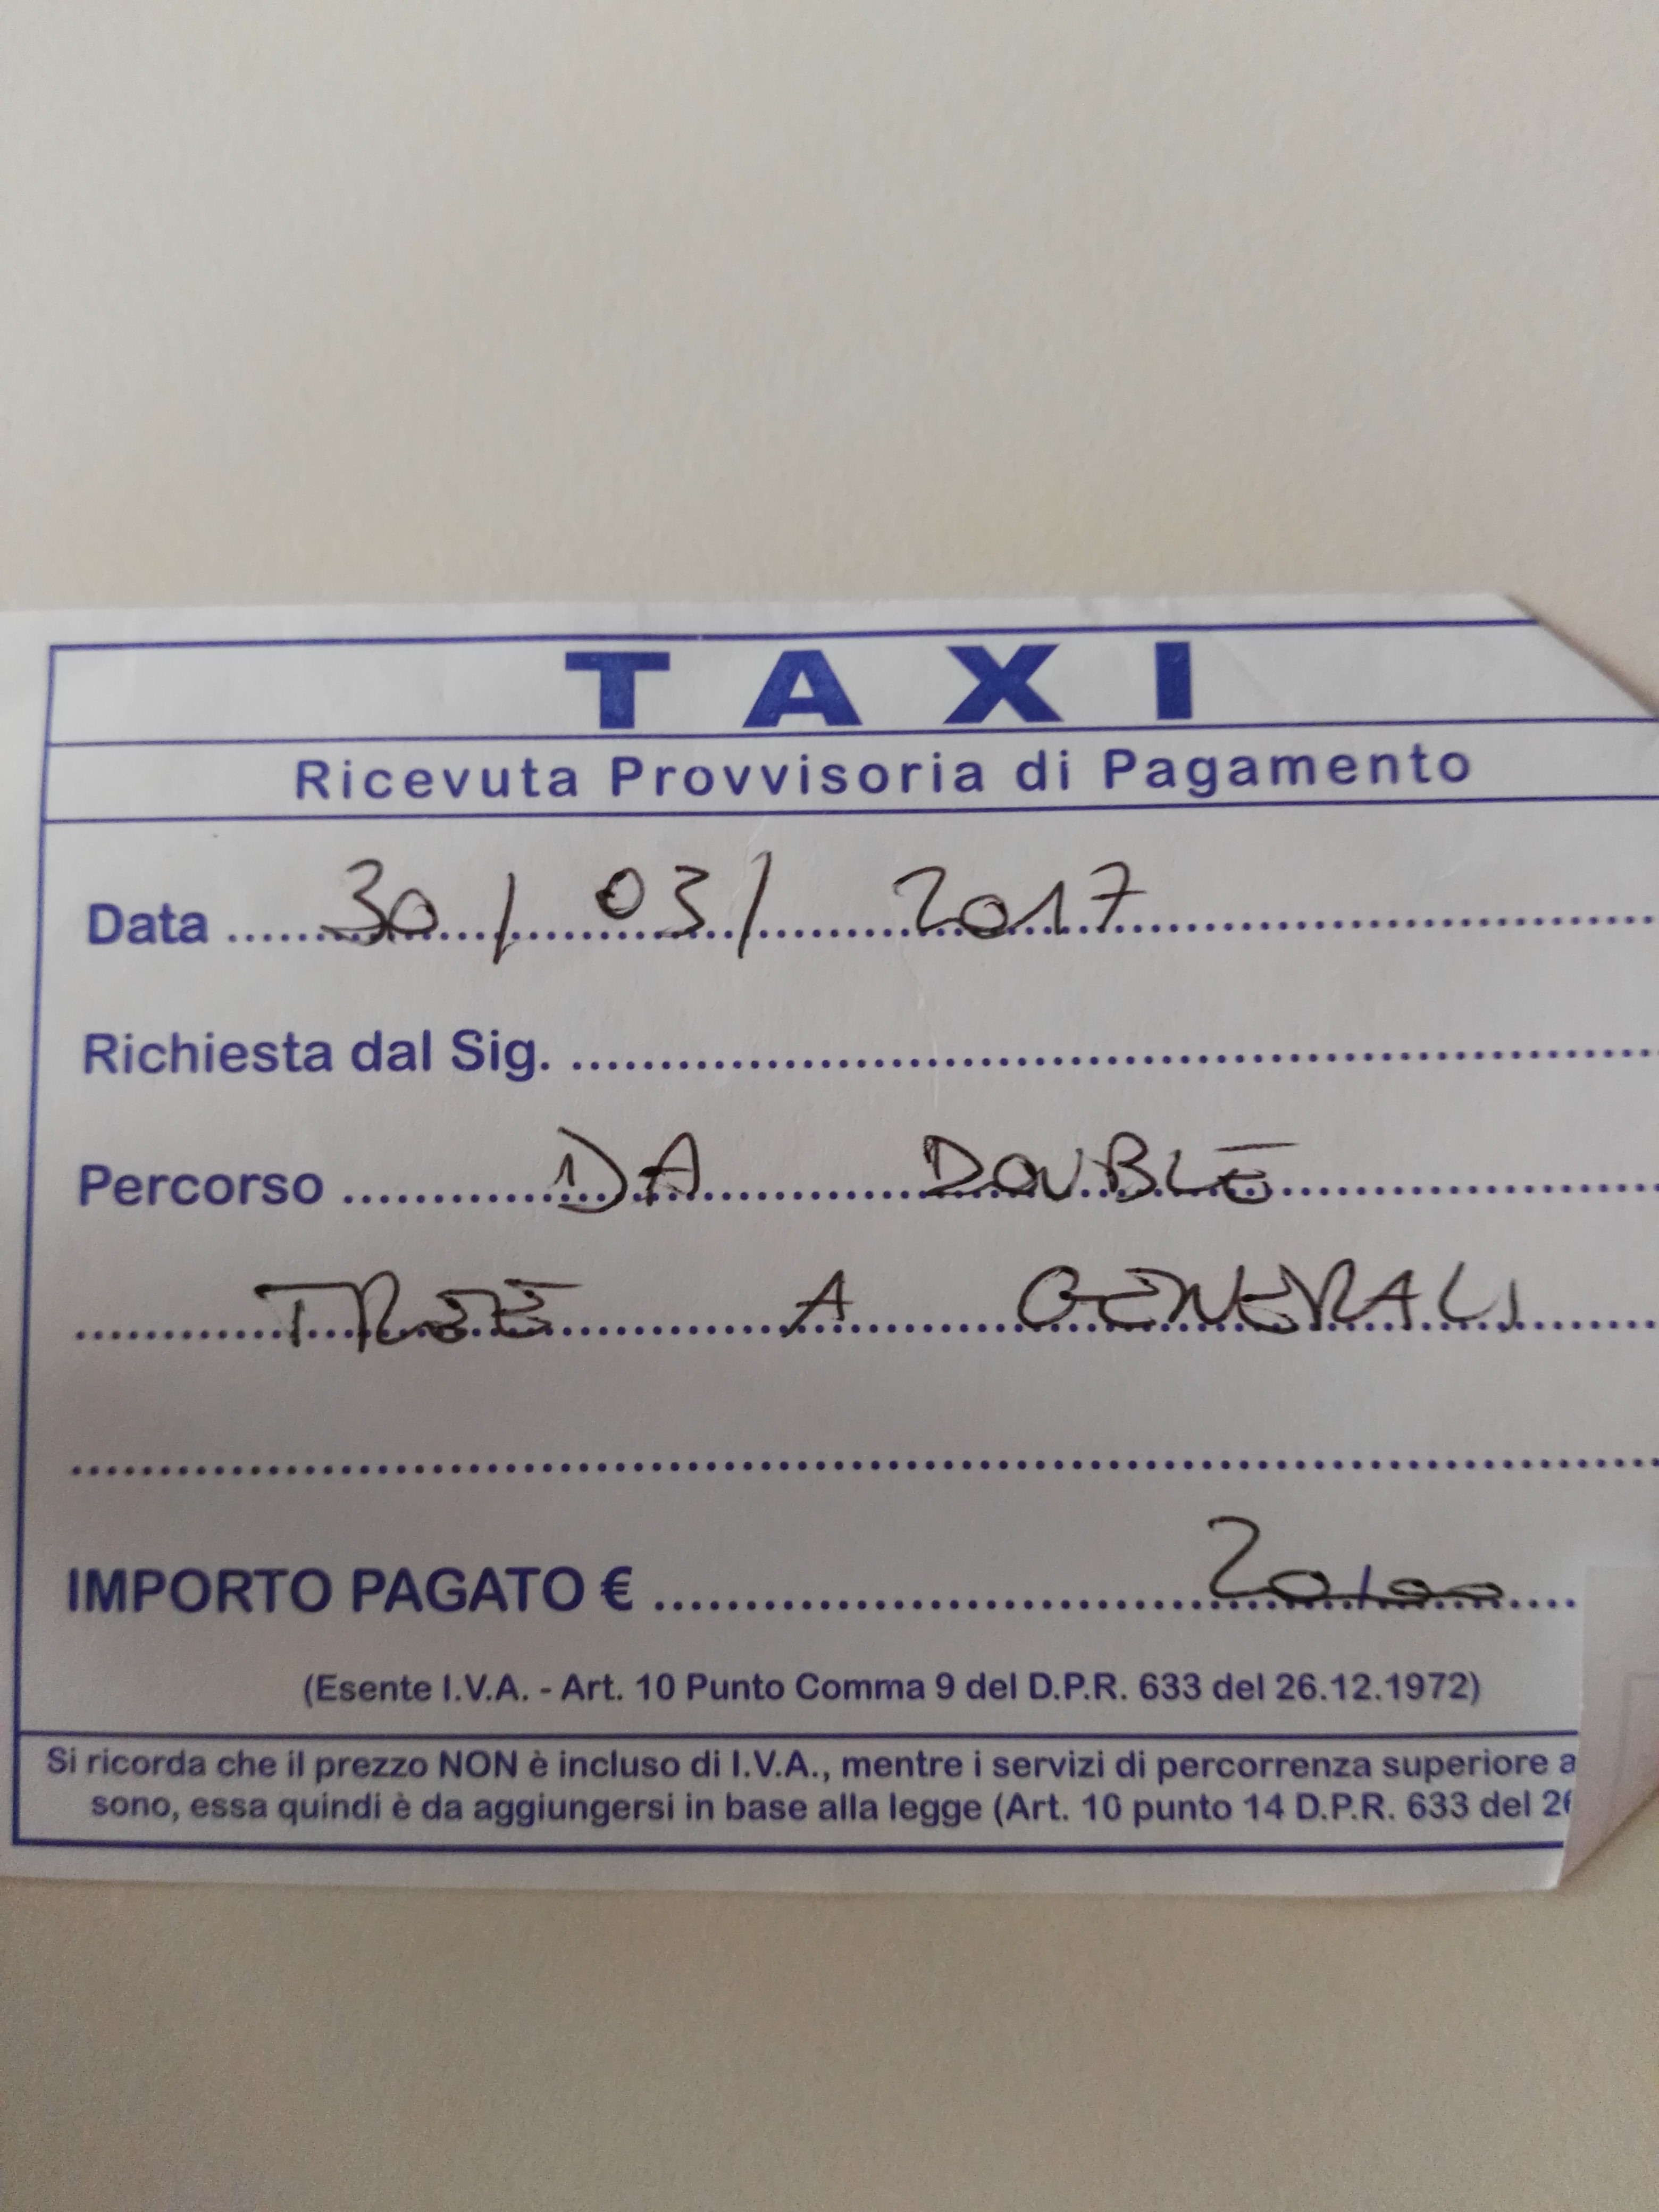 TAXI
Ricevuta Provvisoria di Pagamento
Data ..... 30 / 03 / 2017 .....
Richiesta dal Sig. .....
Percorso ..... DA DOUBLE .....
..... TREE A GENERALI .....
IMPORTO PAGATO € ..... 20,00 .....
(Esente I.V.A. - Art. 10 Punto Comma 9 del D.P.R. 633 del 26.12.1972)
Si ricorda che il prezzo NON è incluso di I.V.A., mentre i servizi di percorrenza superiore a
sono, essa quindi è da aggiungersi in base alla legge (Art. 10 punto 14 D.P.R. 633 del 26